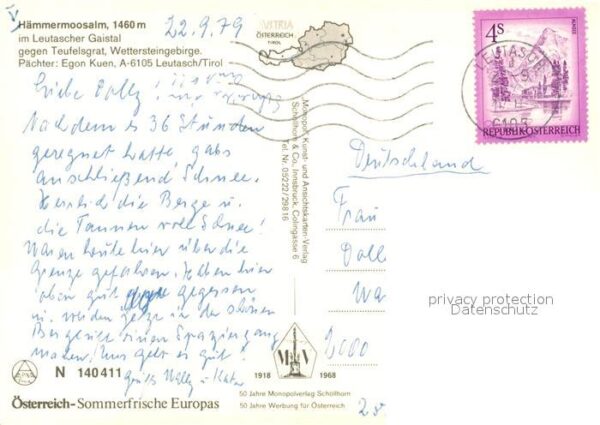 Hämmermoosalm, 1460 m
im Leutascher Gaistal
gegen Teufelsgrat, Wettersteingebirge.
Pächter: Egon Kuen, A-6105 Leutasch/Tirol
22.9.79
ÖSTERREICH
TIROL
4S
REPUBLIK ÖSTERREICH
LEUTASCH
6105
Liebe Dolly
Nachdem es 36 Stunden
geregnet hatte, gabs
anschließend Schnee.
die Berge u.
die Tannen voll Schnee!
Waren heute hier über die
Grenze gefahren. Haben hier
oben gut gegessen
u. werden jetzt in der schönen
Bergluft einen Spaziergang
machen. Uns geht es gut!
Gruß Willy u.
Monopol Kunst- und Ansichtskarten-Verlag
Schöllhorn & Co., Innsbruck, Colingasse 6
Tel. Nr. 05222/29816
Deutschland
Frau
Doll
Wa
privacy protection
Datenschutz
N 140 411
MV
1918 1968
50 Jahre Monopolverlag Schöllhorn
50 Jahre Werbung für Österreich
Österreich-Sommerfrische Europas